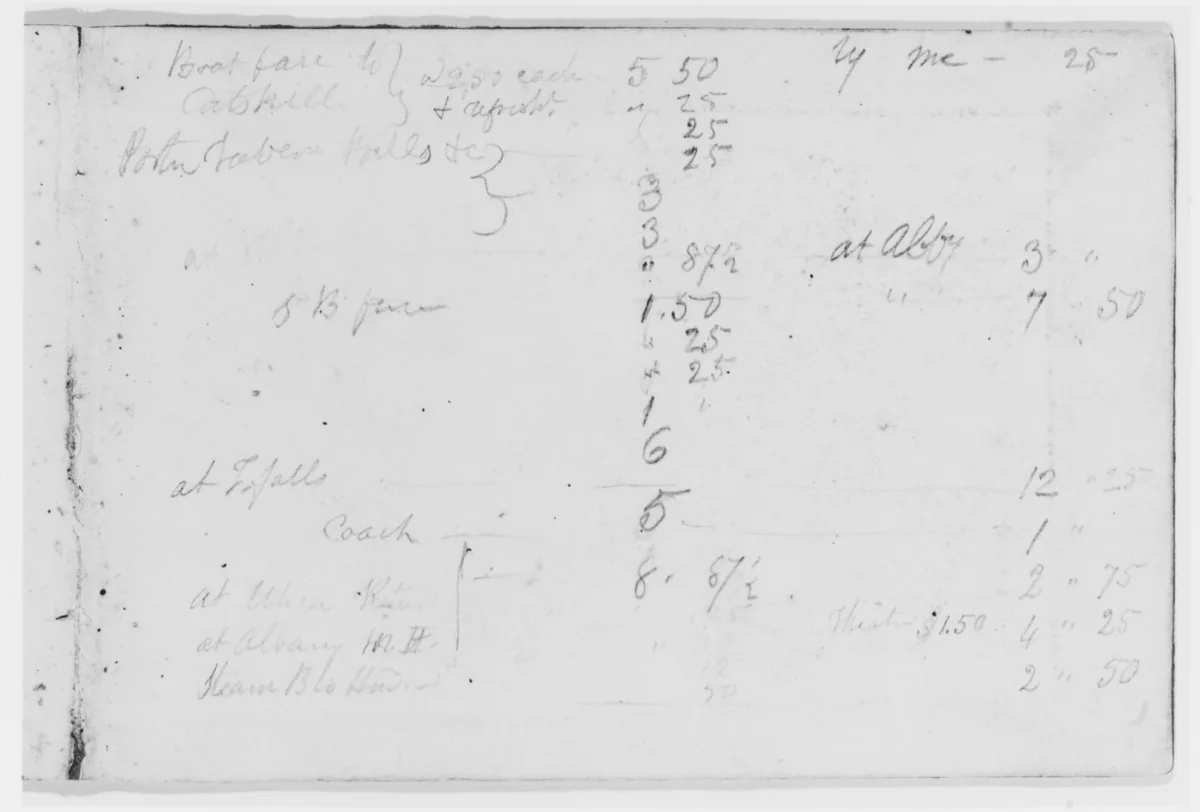 Boat fare to } 2.50 each 5 50 by me - 25
Catskill } & refresht. " 25
25
Falls &c } 25
3
3
at " 87½ at Alby 3 "
S B fare 1.50 " " 7 " 50
" 25
" 25
1 "
6
at T. falls 12 " 25
Coach 5 1 "
at Utica 8 " 87½ 2 " 75
at Albany " Theatre $1.50 4 " 25
Steam B to 50 2 " 50